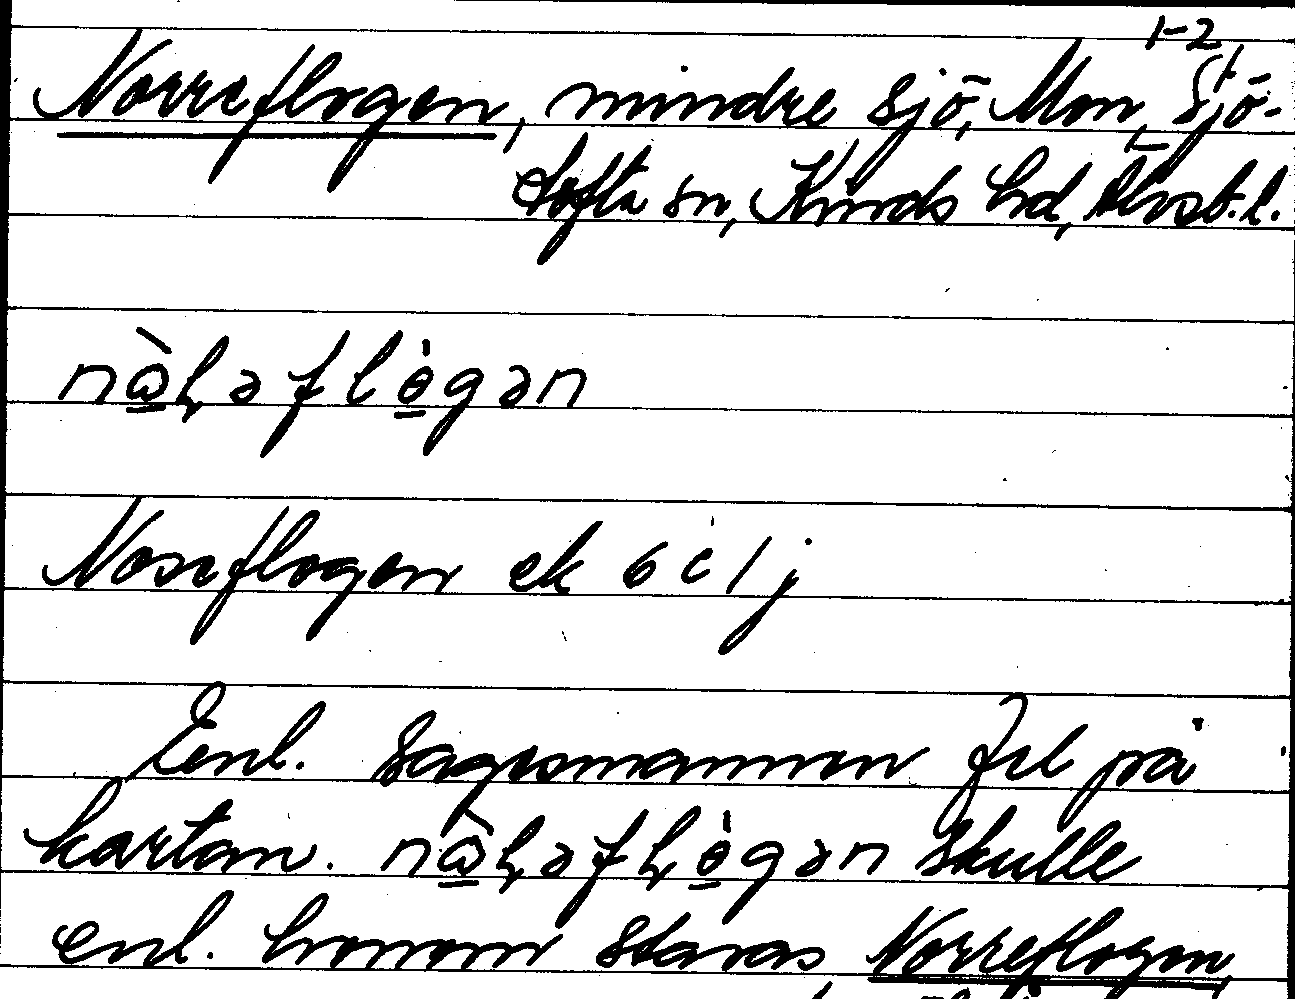 1-2
Norreflogen, mindre sjö, Mon, Sjö-
tofta sn, Kinds hd, Älvsb. l.
Noseflogen ek 6 c 1 j
Enl. sagesmannen fel på
kartan. skulle
enl. honom stavas Norreflogen,